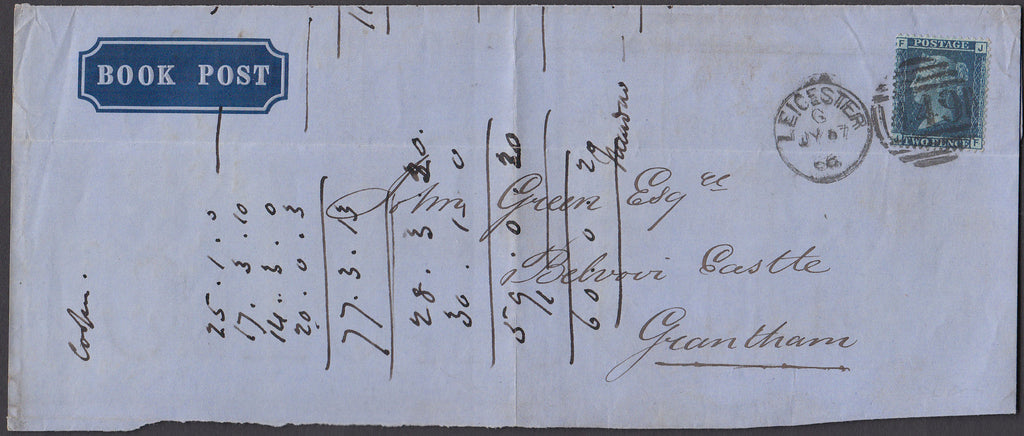 BOOK POST
F POSTAGE J
J TWO PENCE F
LEICESTER
G
JY 67
66
John Green Esqre
Belvoir Castle
Grantham
25 . 1 . 0
17 . 3 . 10
14 . 3 . 0
20 . 0 . 3
77 . 3 . 13
28 . 3 20
30 . 1 0
59 . 0 20
60 0 29